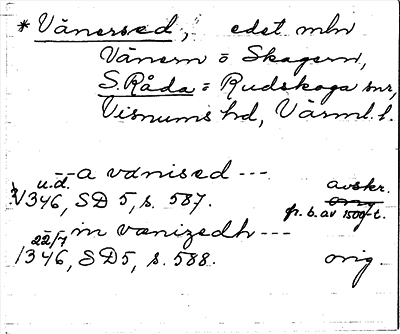 * Vänersed, edet mln
Vänern o Skagern,
S. Råda o Rudskoga snr,
Visnums hd, Värml. l.
--a vænised---
u.d.
1346, SD 5, s. 587. avskr.
fr. b. av 1500-t.
--m vænizedh---
22/7
1346, SD 5, s. 588. orig.